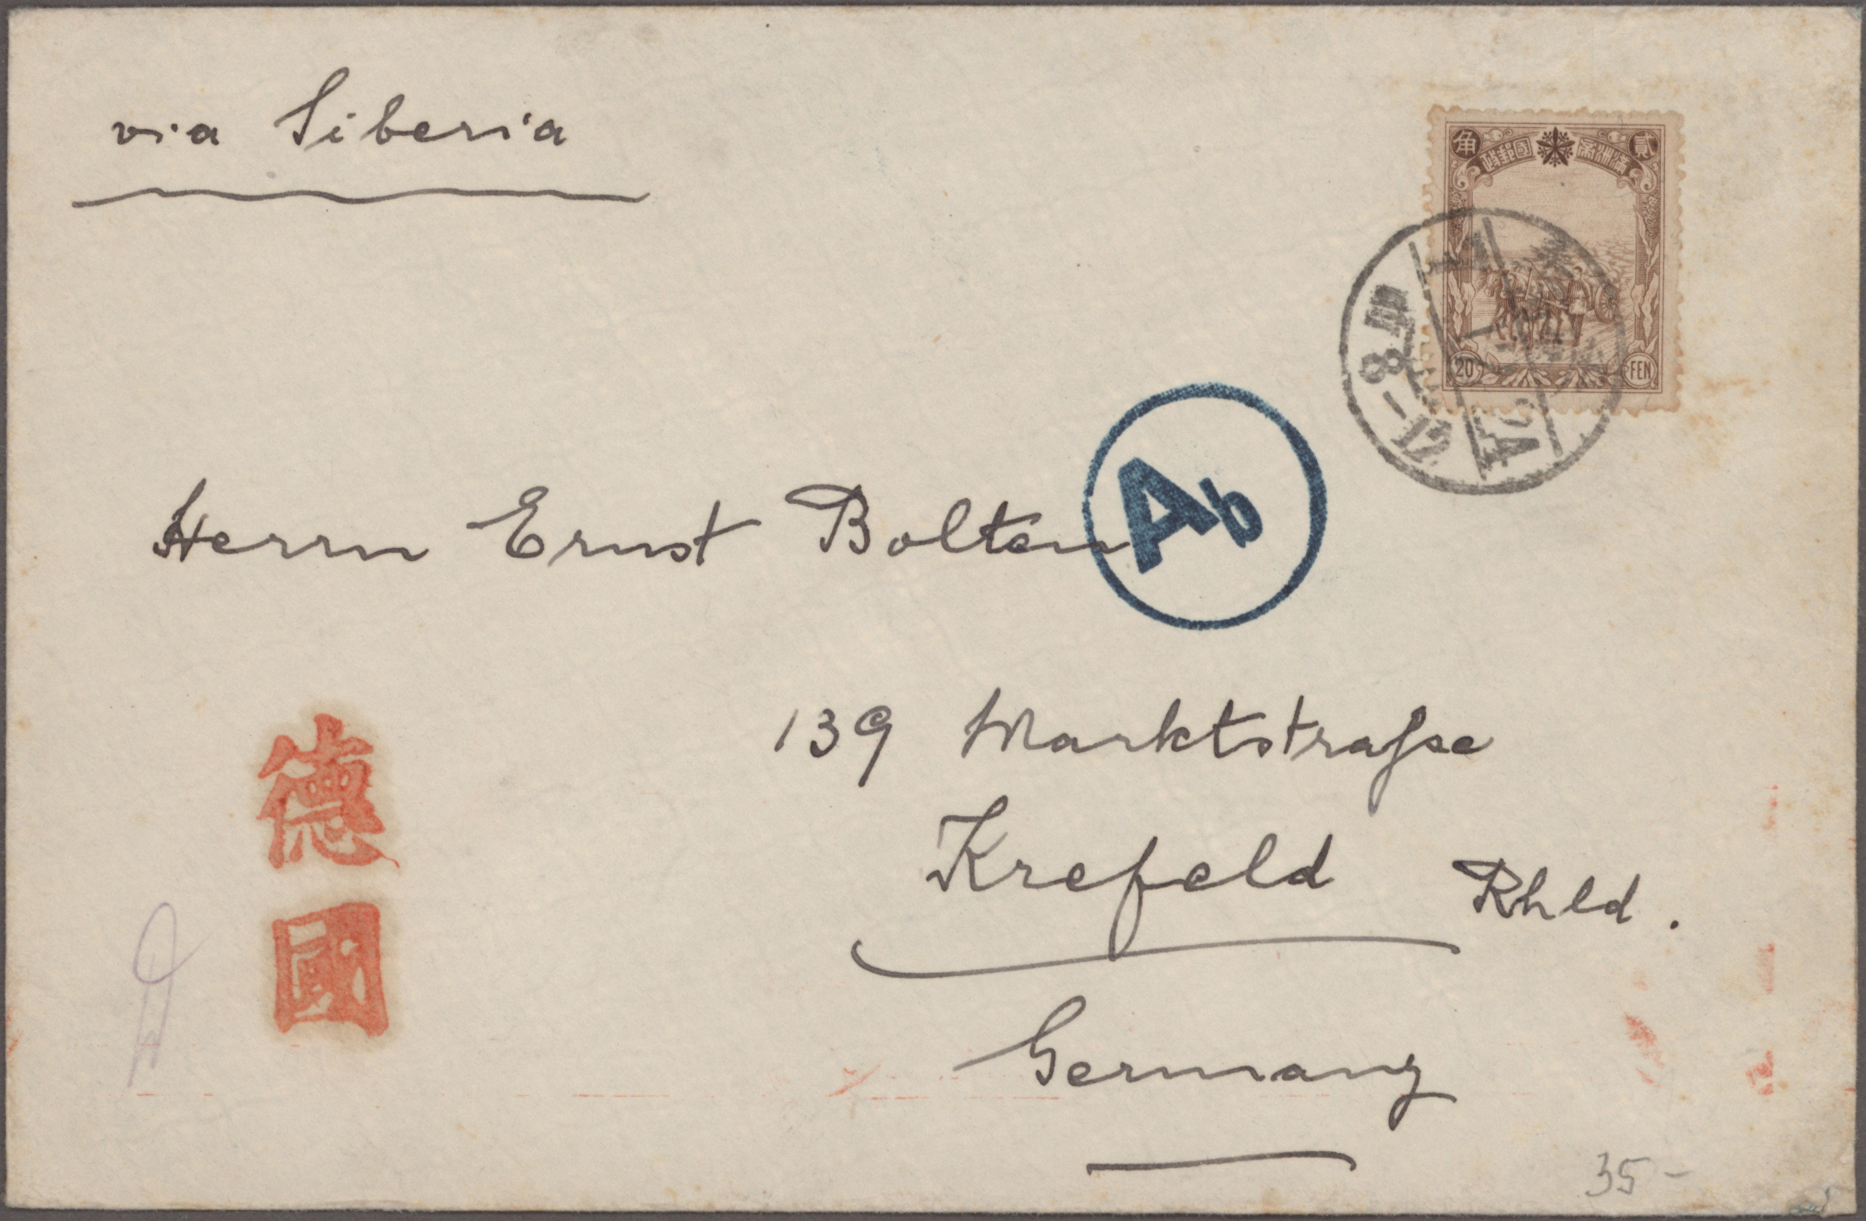 via Siberia
角 滿洲國郵政 貳
20 FEN
24
8
Ab
Herrn Ernst Bolten
139 Marktstraße
Krefeld Rhld.
Germany
德
國
35-